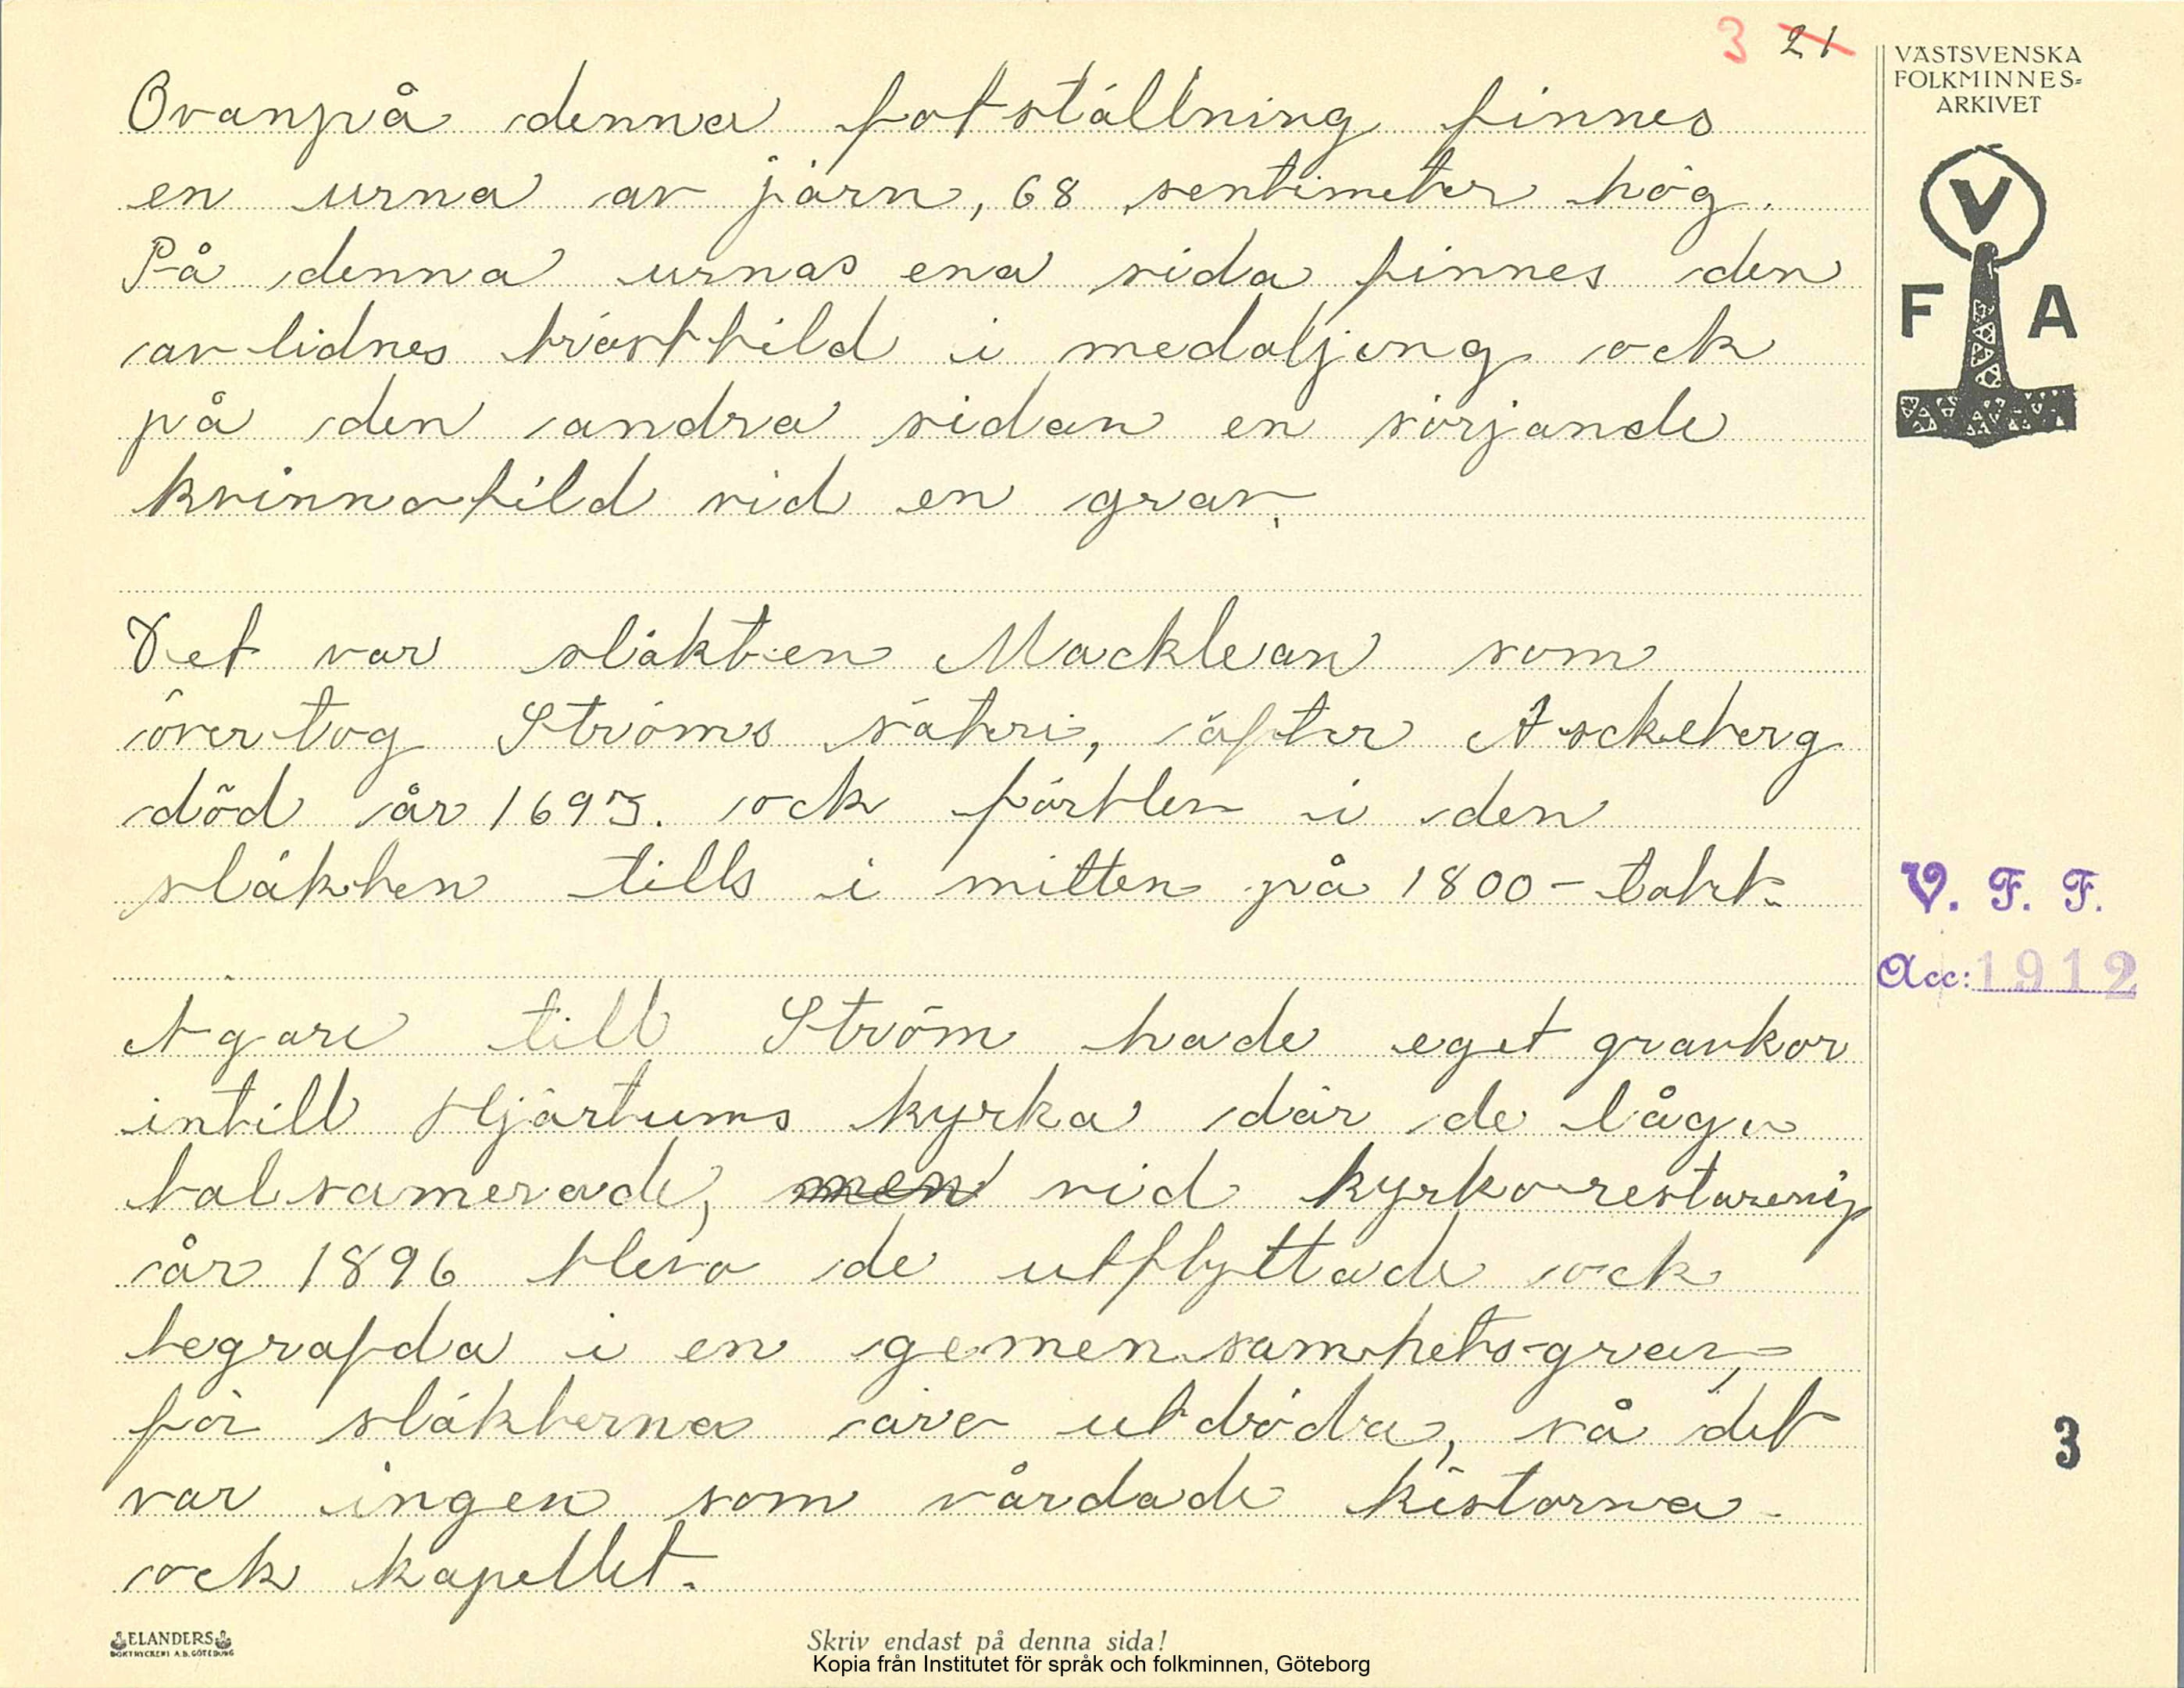 3 21
VÄSTSVENSKA
FOLKMINNES=
ARKIVET
V
F A
Ovanpå denna fotställning finnes
en urna av järn, 68 sentimeter hög.
På denna urnas ena sida finnes den
avlidnes bröstbild i medaljong ock
på den andra sidan en sörjande
kvinnobild vid en grav.
Det var släkten Macklean som
övertog Ströms säteri, äfter Asckeberg
död år 1693. ock förblev i den
släkten tills i mitten på 1800-talet.
Ägare till Ström hade eget gravkor
intill Hjärtums kyrka där de lågo
balsamerade, men vid kyrkorestarering
år 1896 blevo de utflyttade ock
begrafda i en gemensamhets-grav,
för släkterna äro utdöda, så det
var ingen som vårdade kistorna
ock kapellet.
V. F. F.
Acc: 1912
3
ELANDERS
BOKTRYCKERI A.B. GÖTEBORG
Skriv endast på denna sida!
Kopia från Institutet för språk och folkminnen, Göteborg